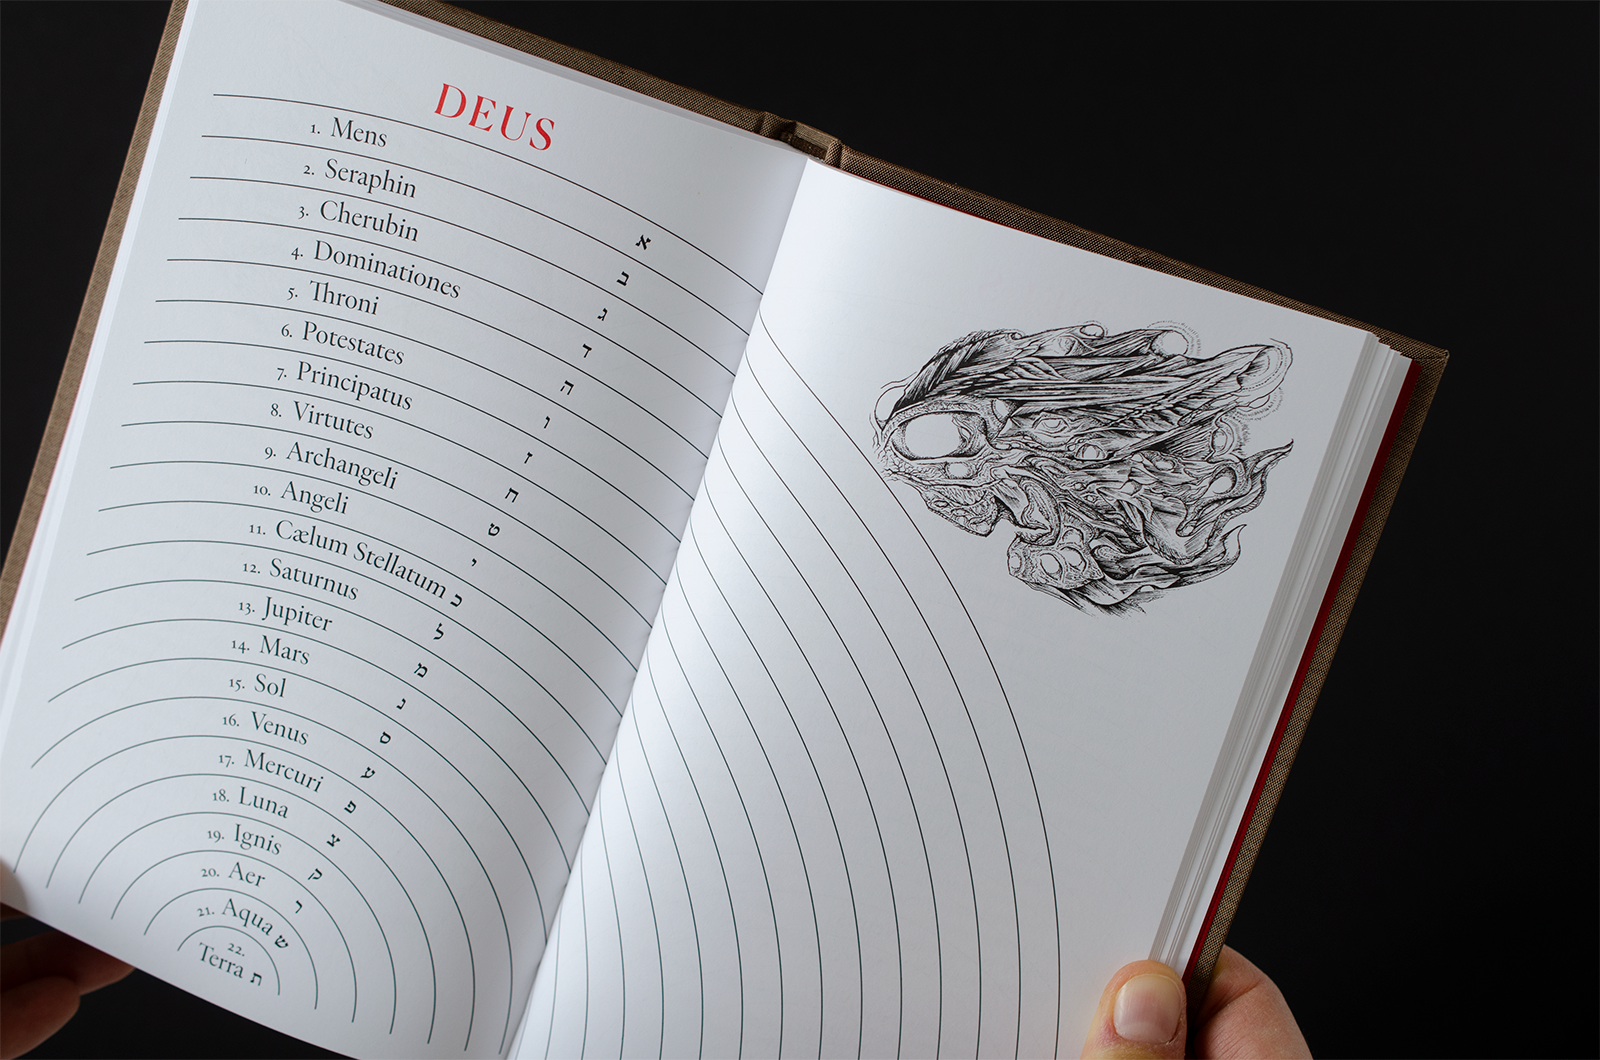 DEUS
1. Mens א
2. Seraphin ב
3. Cherubin ג
4. Dominationes ד
5. Throni ה
6. Potestates ו
7. Principatus ז
8. Virtutes ח
9. Archangeli ט
10. Angeli י
11. Cælum Stellatum כ
12. Saturnus ל
13. Jupiter מ
14. Mars נ
15. Sol ס
16. Venus ע
17. Mercuri פ
18. Luna צ
19. Ignis ק
20. Aer ר
21. Aqua ש
22.
Terra ת